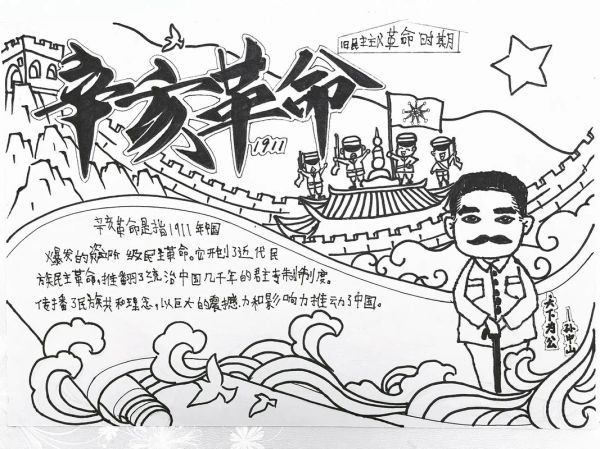 旧民主主义革命时期
辛亥革命
1911
辛亥革命是指1911年中国
爆发的资产阶级民主革命。它开创了近代民
族民主革命,推翻了统治中国几千年的君主专制制度。
传播了民族共和理念,以巨大的震撼力和影响力推动了中国。
天下为公
—孙中山